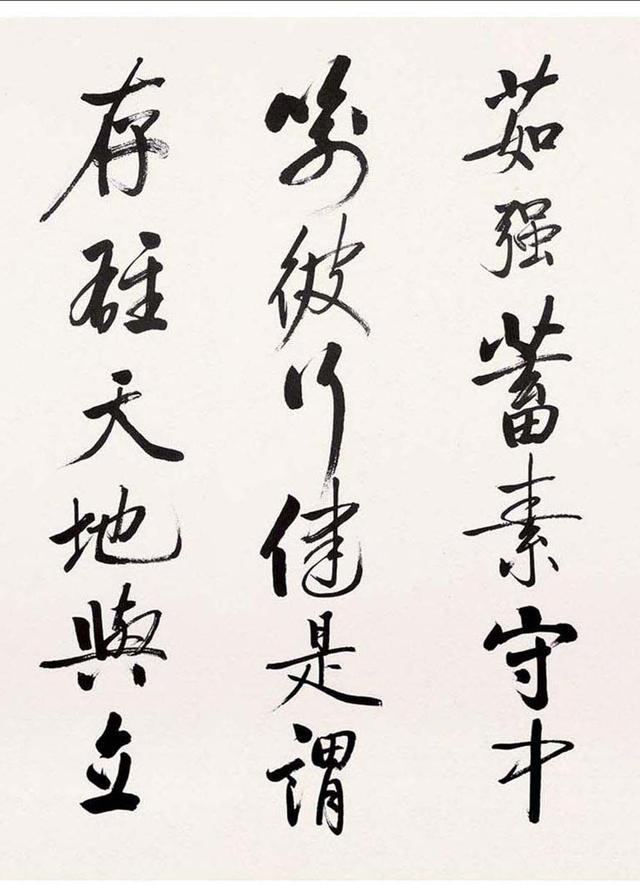 茹强蓄素守中
喻彼行健是谓
存雄天地與立